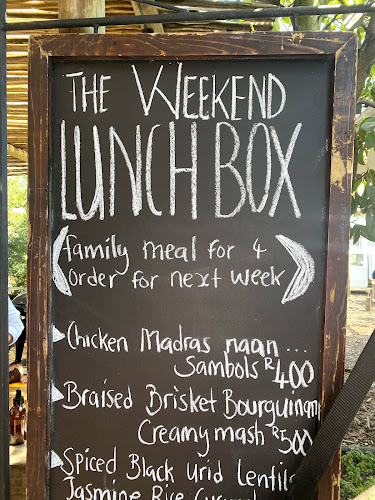 THE WEEKEND
LUNCH BOX
family meal for 4
order for next week
Chicken Madras naan ...
Sambols R400
Braised Brisket Bourguinan
Creamy mash R500
Spiced Black Urid Lentils
Jasmine Rice